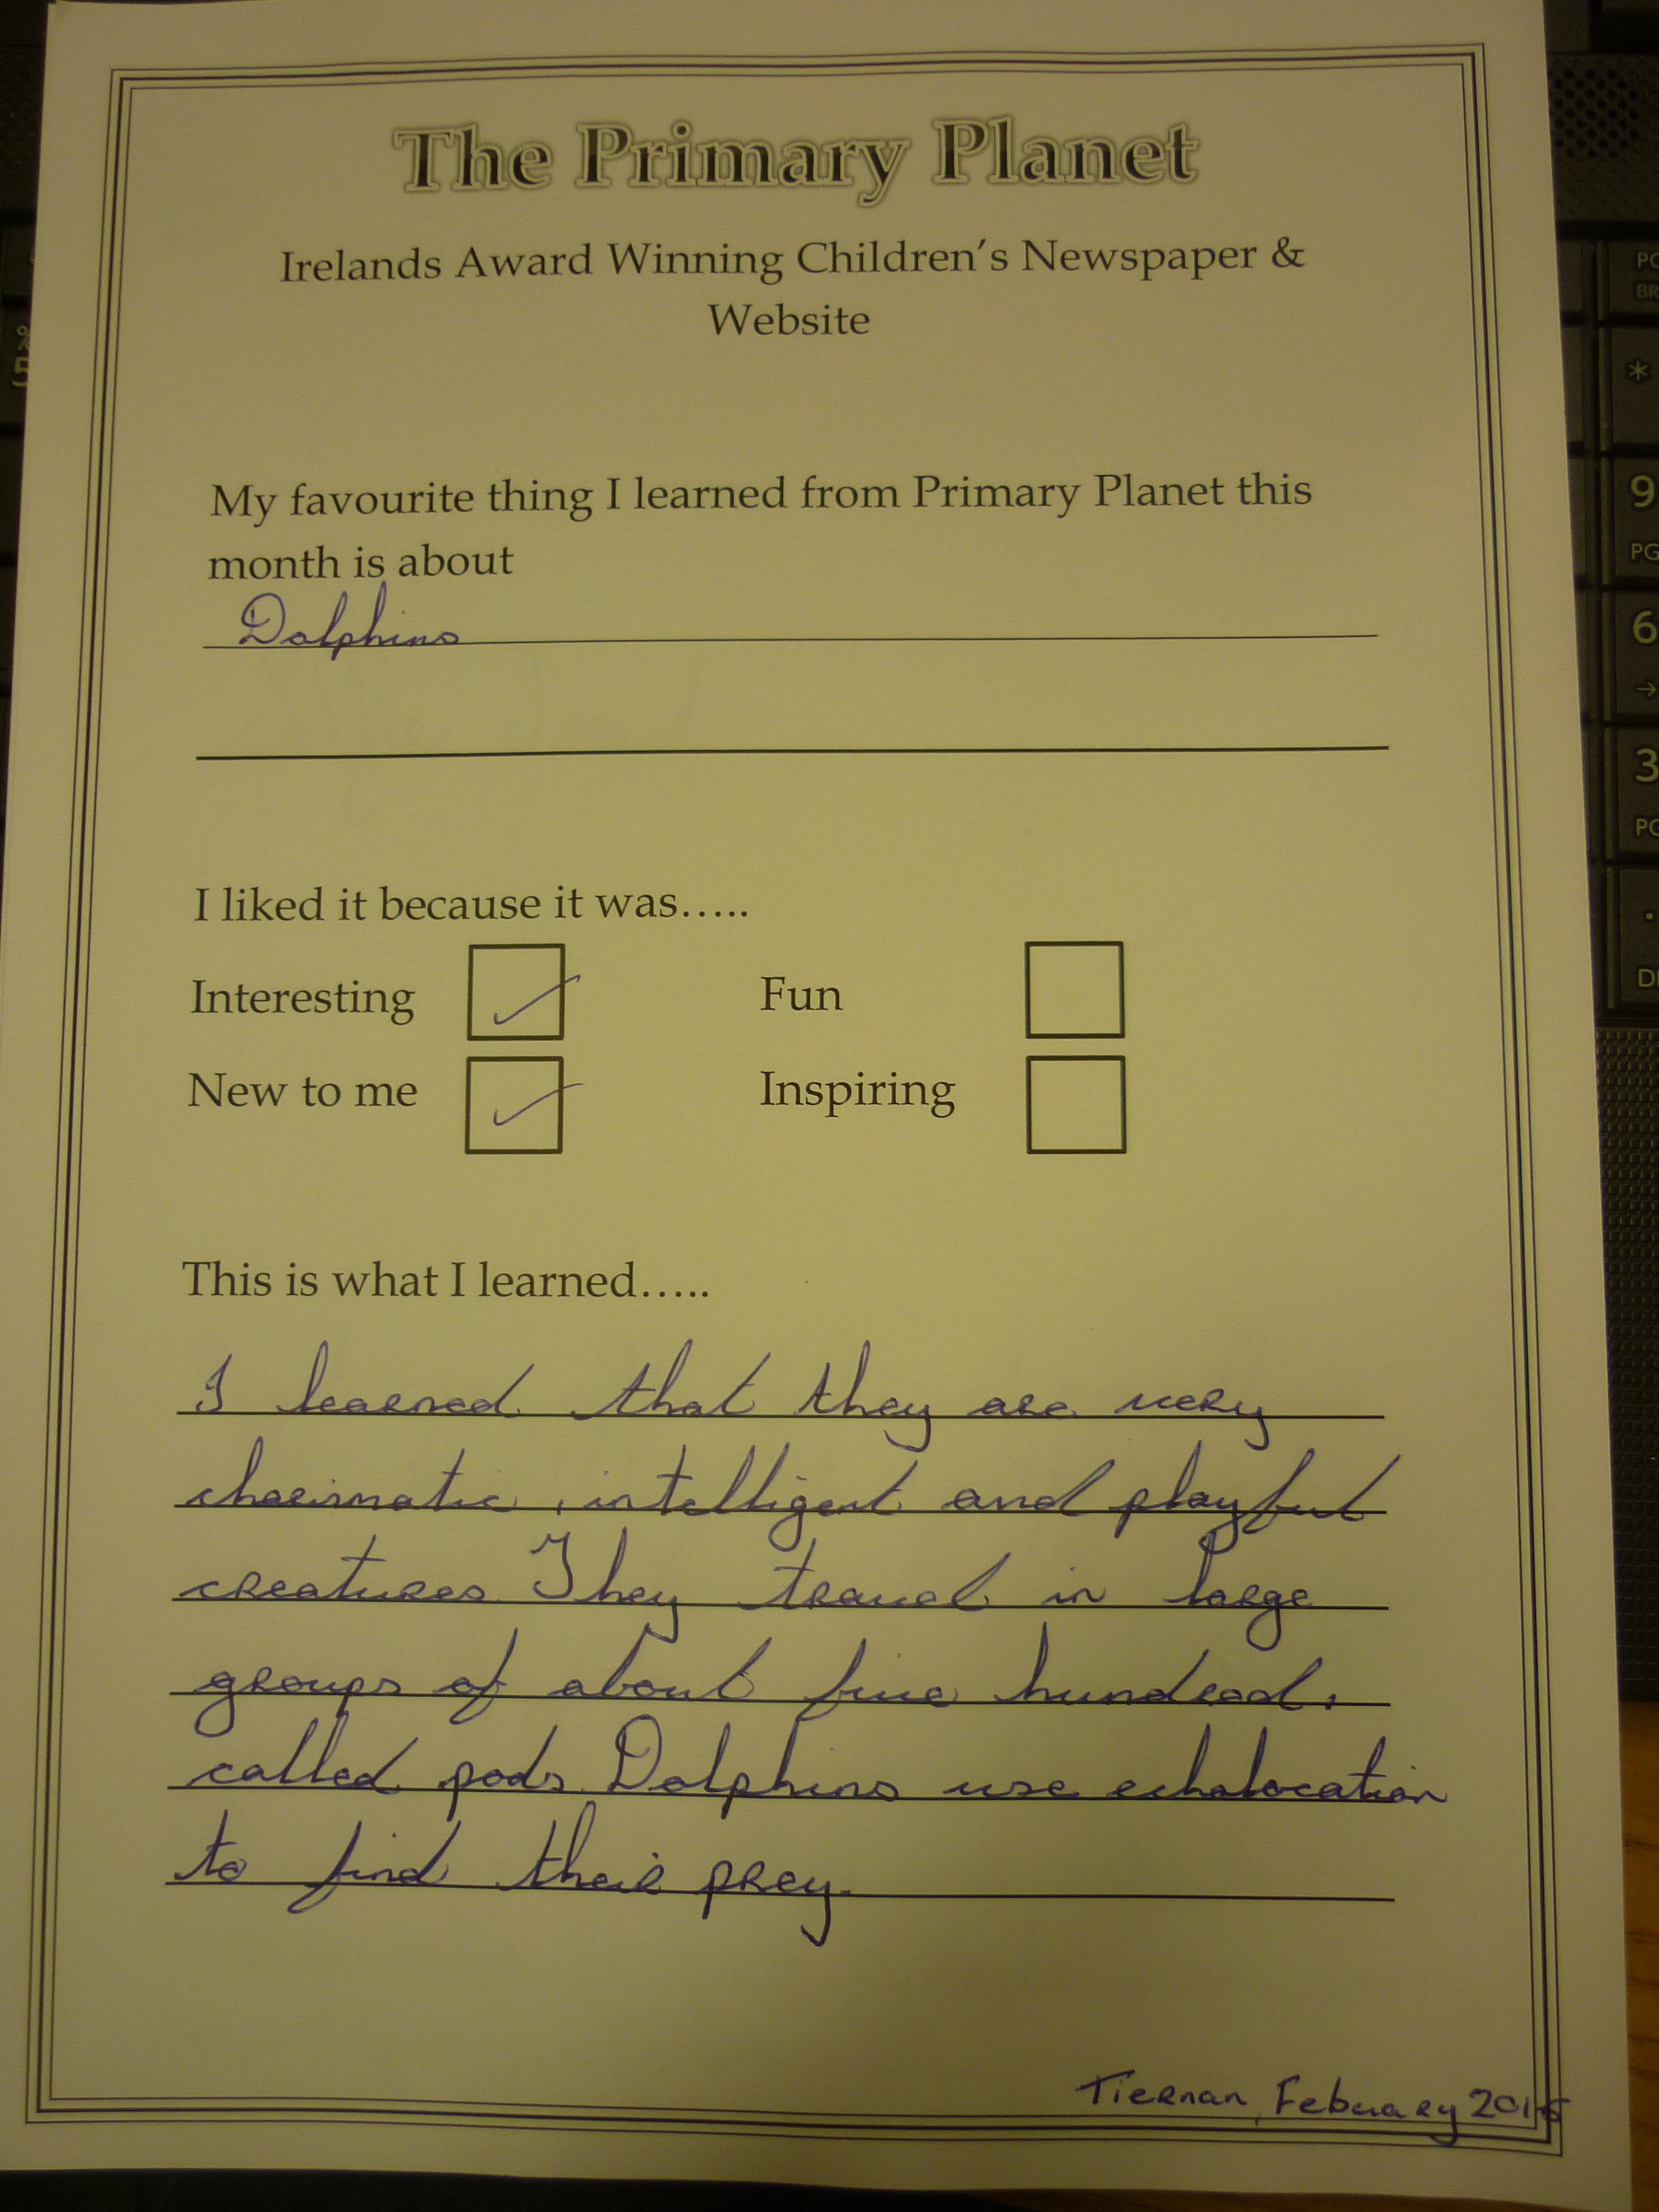 The Primary Planet
Irelands Award Winning Children's Newspaper &
Website
My favourite thing I learned from Primary Planet this
month is about
Dolphins
I liked it because it was.....
Interesting
Fun
New to me
Inspiring
This is what I learned.....
I learned that they are very
charimatic, intelligent and playful
creatures. They travel in large
groups of about five hundred,
called pods. Dolphins use echolocation
to find their prey.
Tiernan, Febuary